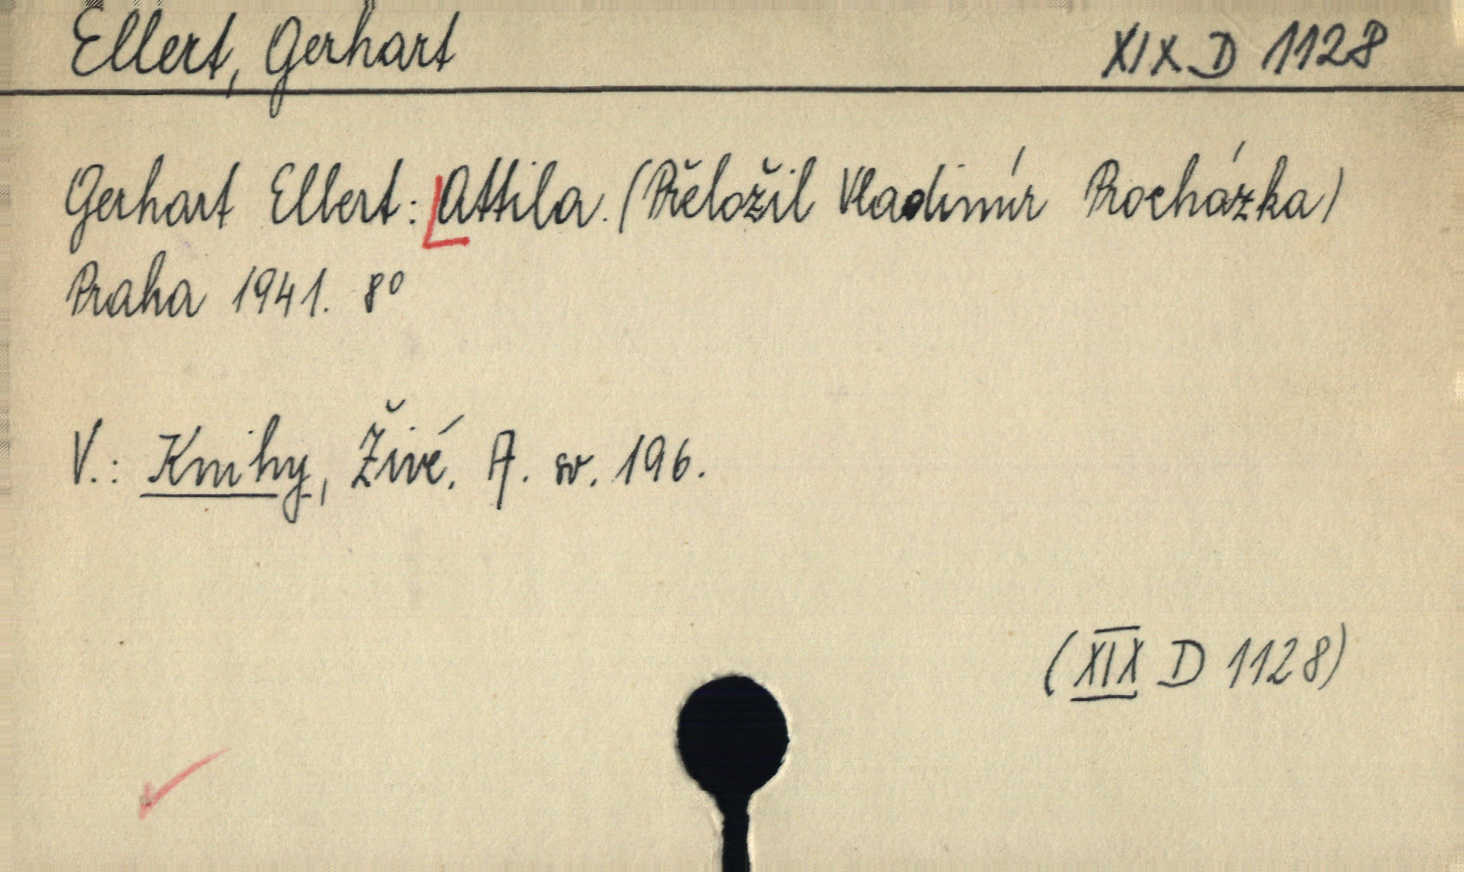 Ellert, Gerhart XIX D 1128
Gerhart Ellert: Attila. (Přeložil Vladimír Procházka)
Praha 1941. 8°
V.: Knihy, Živé. A. sv. 196.
(XIX D 1128)